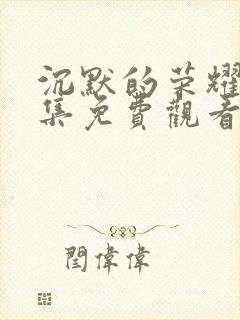 沉默的荣耀
集免費觀看
閆偉偉